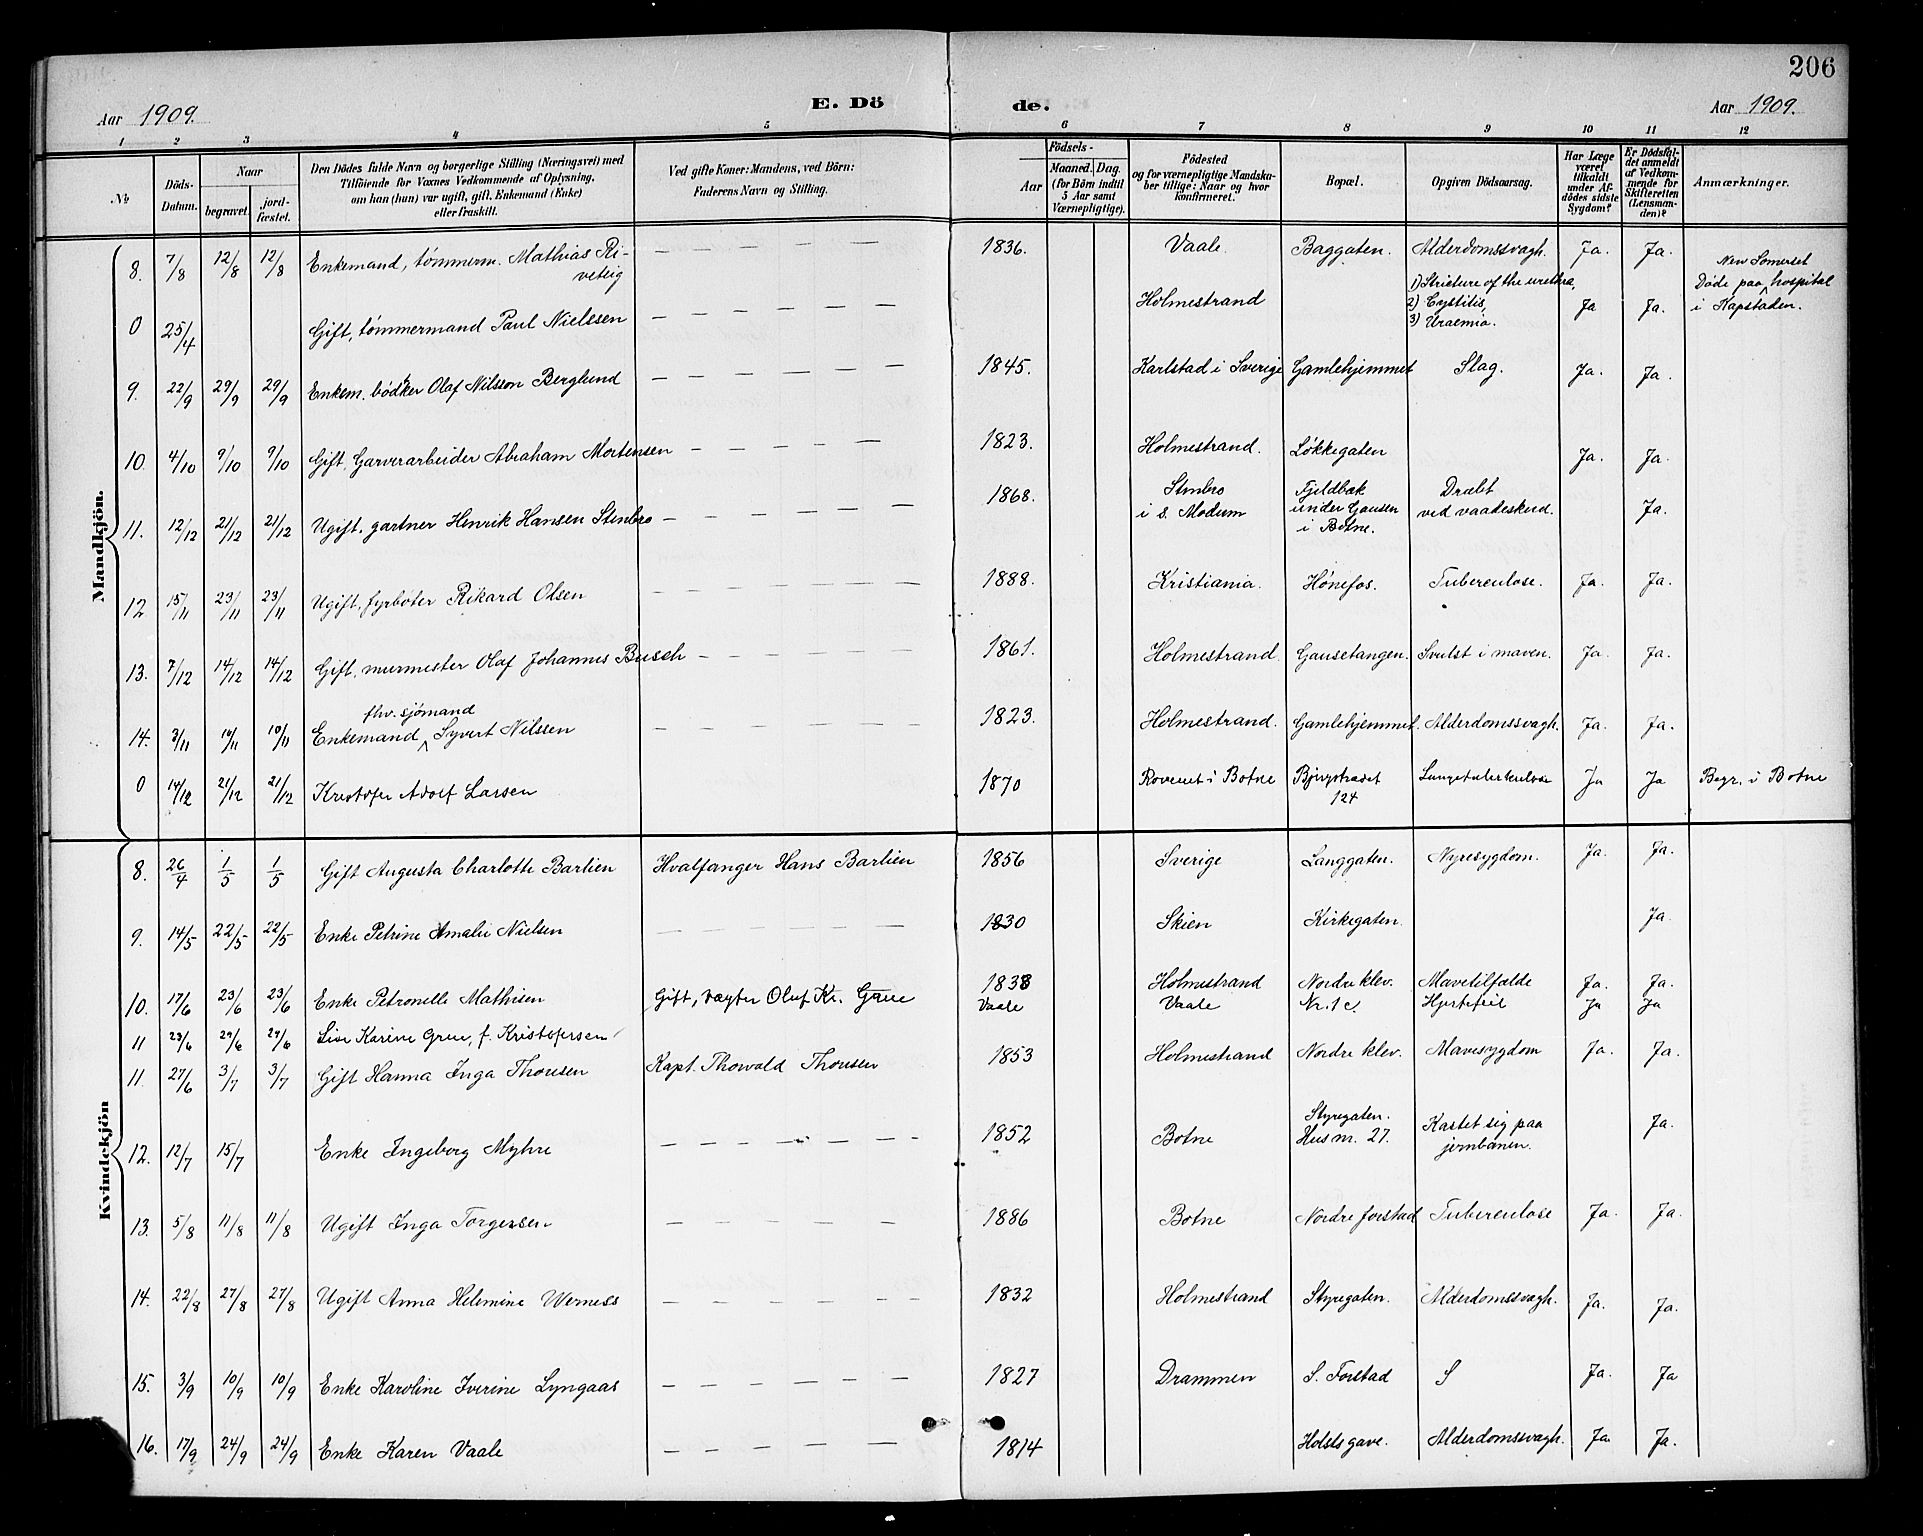 206
Aar 1909. E. Dö de. Aar 1909.
1 2 3 4 5 6 7 8 9 10 11 12
№ Döds-Datum. Naar begravet. jord-fæstet. Den Dödes fulde Navn og borgerlige Stilling (Næringsvei) med Tilföiende for Voxnes Vedkommende af Oplysning, om han (hun) var ugift, gift, Enkemand (Enke) eller fraskilt. Ved gifte Koner: Mandens, ved Börn: Faderens Navn og Stilling. Födsels- Aar Maaned. Dag. (for Börn indtil 5 Aar samt Værnepligtige). Födested og for værnepligtige Mandskaber tillige: Naar og hvor konfirmeret. Bopæl. Opgiven Dödsaarsag. Har Læge været tilkaldt under Afdödes sidste Sygdom? Er Dödsfaldet anmeldt af Vedkommende for Skifteretten (Lensmanden)? Anmærkninger.
Mandkjön.
8. 7/8 12/8 12/8 Enkemand, tømmerm. Mathias Ri-veteig — — — — — 1836. Vaale. Baggaten. Alderdomssvagh. Ja. Ja.
0 25/4 Gift, tømmermand Paul Nielssen — — — — — Holmestrand 1) Stricture of the urethra, 2) Cystitis, 3) Uraemia. Ja Ja. Døde paa New Somerset hospital i Kapstaden.
9. 22/9 29/9 29/9 Enkem. bødker Olaf Nilsson Berglund — — — — — 1845. Karlstad i Sverige Gamlehjemmet Slag. Ja. Ja.
10. 4/10 9/10 9/10 Gift, Garverarbeider Abraham Mortensen — — — — — 1823. Holmestrand. Løkkegaten Ja. Ja.
11. 12/12 21/12 21/12 Ugift, gartner Henrik Hansen Stenbro — — — — — 1868. Stenbro i s. Modum Fjeldbæk under Gausen i Botne. Dræbt ved vaadeskud. Ja.
12 15/11 23/11 23/11 Ugift, fyrbøter Rikard Olsen — — — — — 1888. Kristiania. Hønefos. Tuberculose. Ja. Ja.
13. 7/12 14/12 14/12 Gift, murmester Olaf Johannes Busch — — — — — 1861. Holmestrand. Gausetangen. Svulst i maven. Ja. Ja.
14. 3/11 10/11 10/11 Enkemand fhv. sjømand Syvert Nilssen — — — — — 1823. Holmestrand. Gamlehjemmet. Alderdomssvagh. Ja. Ja.
0 14/12 21/12 21/12 Kristofer Adolf Larsen 1870 Roveuet i Botne 124 Lungetuberkulose Ja Ja Begr. i Botne
Kvindekjön
8. 26/4 1/5 1/5 Gift Augusta Charlotte Barlien Hvalfanger Hans Barlien 1856 Sverige Langgaten. Nyresygdom. Ja. Ja.
9. 14/5 22/5 22/5 Enke Petrine Amalie Nielsen — — — — — 1830 Skien Kirkegaten. Ja.
10. 17/6 23/6 23/6 Enke Petronelle Mathisen 1838 Holmestrand Nordre klev. Mavetilfælde Ja. Ja.
11 23/6 29/6 29/6 Lise Karine Grue, f. Kristofersen Gift, vægter Oluf Kr. Grue Vaale Vaale Nr. 1 c. Hjertefeil Ja Ja
11. 27/6 3/7 3/7 Gift Hanna Inga Thousen Kapt. Thorvald Thousen 1853 Holmestrand Nordre klev. Mavesygdom Ja. Ja.
12. 12/7 15/7 Enke Ingeborg Myhre — — — — — 1852 Botne Styregaten. Hus nr. 27. Kastet sig paa jernbanen. Ja.
13. 5/8 11/8 11/8 Ugift Inga Torgersen — — — — — 1886 Botne Nordre forstad Tuberculose Ja. Ja.
14. 22/8 27/8 27/8 Ugift Anna Helemine Werness — — — — — 1832 Holmestrand Styregaten. Alderdomssvagh. Ja. Ja.
15. 3/9 10/9 10/9 Enke Karoline Iverine Lyngaas — — — — — 1827 Drammen S. Forstad S Ja. Ja
16. 17/9 24/9 24/9 Enke Karen Vaale — — — — — 1814 Holsts gave. Alderdomssvagh. Ja. Ja.